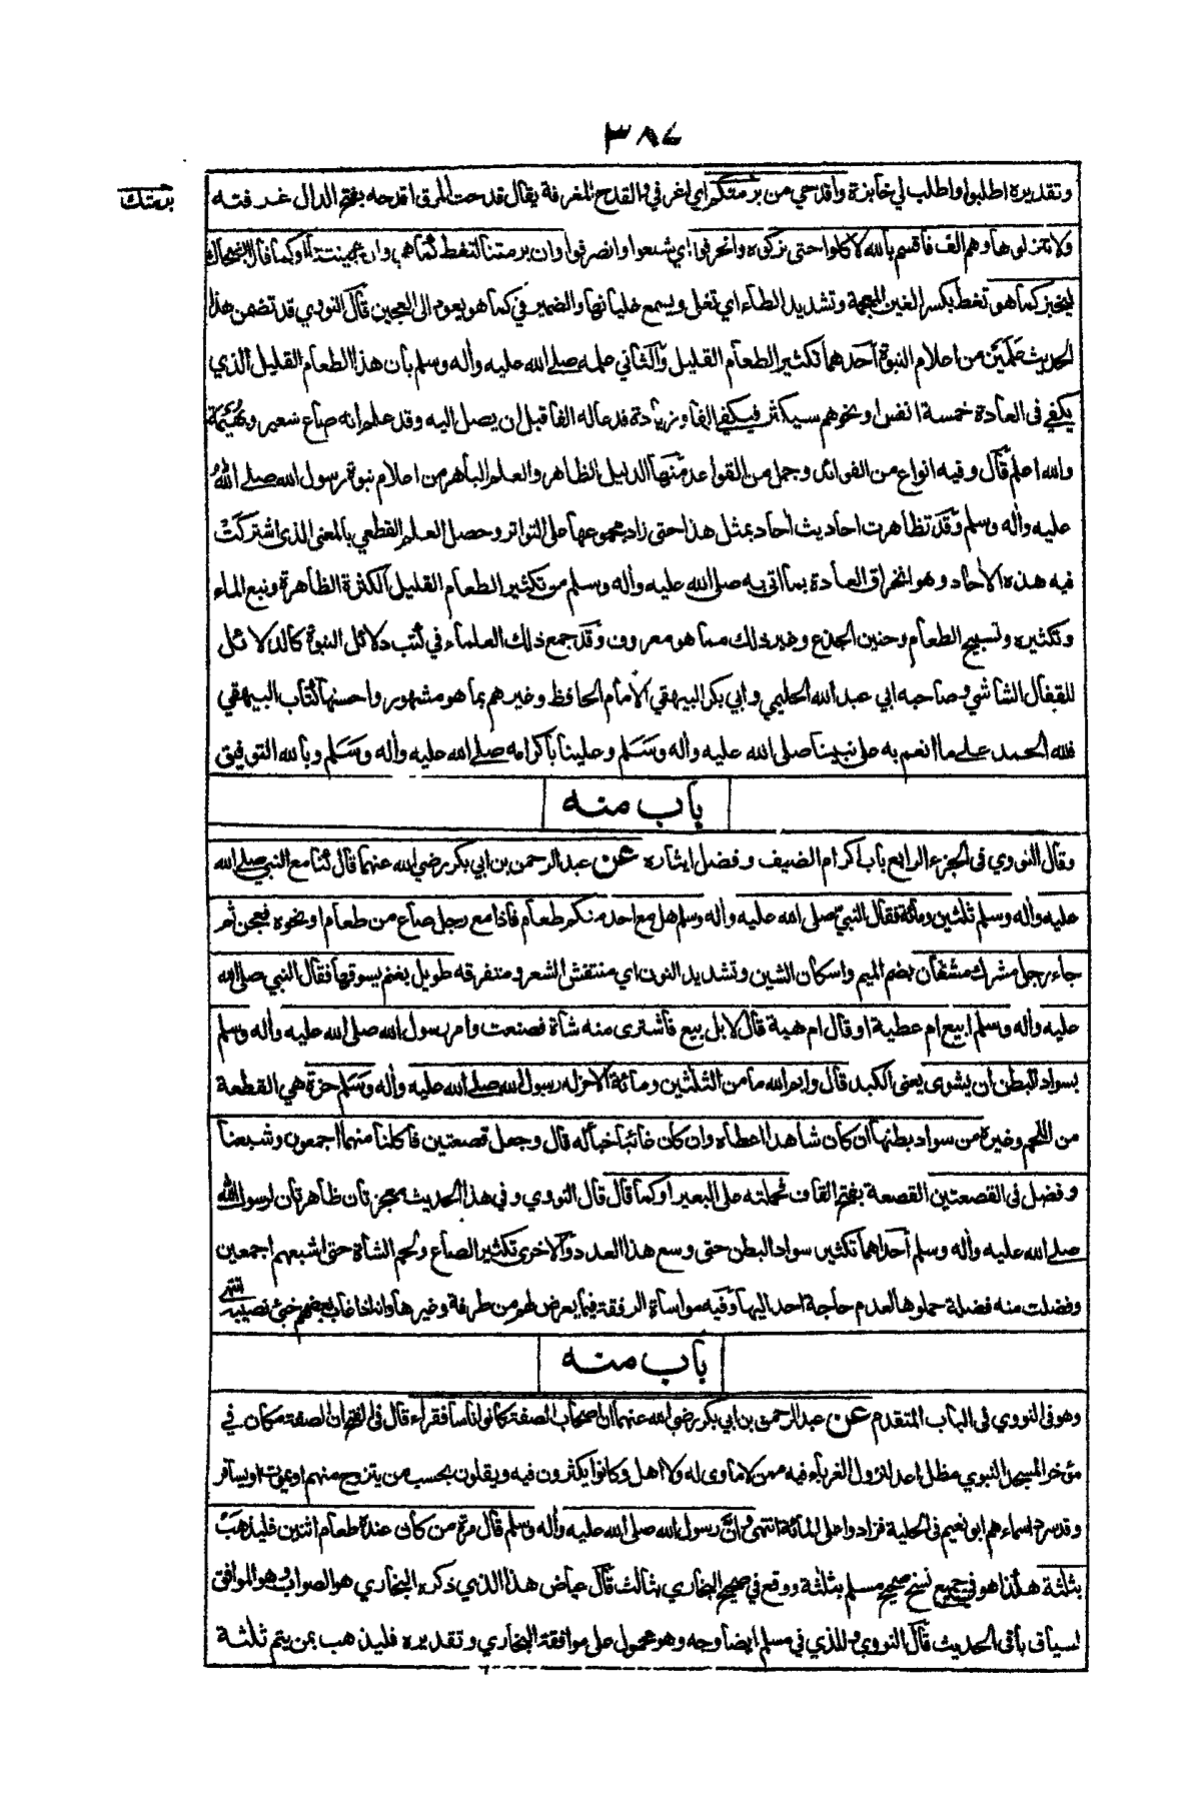 ٣٨٤
برمتك
وتقديره اطلبوا واطلب لي خابزة واقدحي من برمتكم اي اغرفي والقدح المغرفة يقال قدحت المرق اقدحه بفتح الدال غرفته
ولا تنزلوها وهم الف فاقسم بالله لاكلوا حتى تركوه وانحرفوا اي شبعوا وانصرفوا وان برمتنا لتغط كما هي وان عجينتنا او كما قال الضحاك
لتخبز كما هو تغط بكسر الغين المعجمة وتشديد الطاء اي تغلي ويسمع غليانها والضمير في كما هو يعود الى العجين قال النووي قد تضمن هذا
الحديث علمين من اعلام النبوة احدهما تكثير الطعام القليل والثاني علمه صلى الله عليه واله وسلم بان هذا الطعام القليل الذي
يكفي في العادة خمسة انفس او نحوهم سيكثر فيكفي الفا وزيادة فدعا له الفا قبل ان يصل اليه وقد علم انه صاع شعير وبهيمة
والله اعلم قال وفيه انواع من الفوائد وجمل من القواعد منها الدليل الظاهر والعلم الباهر من اعلام نبوة رسول الله صلى الله
عليه واله وسلم وقد تظاهرت احاديث احاد بمثل هذا حتى زاد مجموعها على التواتر وحصل العلم القطعي بالمعنى الذي اشتركت
فيه هذه الاحاد وهو انخراق العادة بما اتى به صلى الله عليه واله وسلم من تكثير الطعام القليل الكثرة الظاهرة ونبع الماء
وتكثيره وتسبيح الطعام وحنين الجذع وغير ذلك مما هو معروف وقد جمع ذلك العلماء في كتب دلائل النبوة كالدلائل
للقفال الشاشي وصاحبه ابي عبد الله الحليمي وابي بكر البيهقي الامام الحافظ وغيرهم بما هو مشهور واحسنها كتاب البيهقي
فلله الحمد على ما انعم به على نبينا صلى الله عليه واله وسلم وعلينا باكرامه صلى الله عليه واله وسلم وبالله التوفيق
باب منه
وقال النووي في الجزء الرابع باب اكرام الضيف وفضل ايثاره عن عبد الرحمن بن ابي بكر رضي الله عنهما قال كنا مع النبي صلى الله
عليه واله وسلم ثلثين ومائة فقال النبي صلى الله عليه واله وسلم هل مع احد منكم طعام فاذا مع رجل صاع من طعام او نحوه فعجن ثم
جاء رجل مشرك مشعان بضم الميم واسكان الشين وتشديد النون اي منتفش الشعر ومتفرقه طويل بغنم يسوقها فقال النبي صلى الله
عليه واله وسلم ابيع ام عطية او قال ام هبة قال لا بل بيع فاشترى منه شاة فصنعت وامر رسول الله صلى الله عليه واله وسلم
بسواد البطن ان يشوى يعني الكبد قال وايم الله ما من الثلثين ومائة الا حز له رسول الله صلى الله عليه واله وسلم حزة هي القطعة
من اللحم وغيره من سواد بطنها ان كان شاهدا اعطاه وان كان غائبا خبا له قال وجعل قصعتين فاكلنا منهما اجمعون وشبعنا
وفضل في القصعتين القصعة بفتح القاف فحملته على البعير او كما قال قال النووي وفي هذا الحديث معجزتان ظاهرتان لرسول الله
صلى الله عليه واله وسلم احداهما تكثير سواد البطن حتى وسع هذا العدد والاخرى تكثير الصاع ولحم الشاة حتى اشبعهم اجمعين
وفضلت منه فضلة حملوها لعدم حاجة احد اليها وفيه مواساة الرفقة فيما يعرض لهم من طرفة وغيرها وانه اذا غاب بعضهم خبئ نصيبه انتهى
باب منه
وهو في النووي في الباب المتقدم عن عبد الرحمن بن ابي بكر رضي الله عنهما ان اصحاب الصفة كانوا ناسا فقراء قال في الفتح ان الصفة مكان في
مؤخر المسجد النبوي مظلل اعد لنزول الغرباء فيه ممن لا ماوى له ولا اهل وكانوا يكثرون فيه ويقلون بحسب من يتزوج منهم او يموت او يسافر
وقد سرد اسماءهم ابو نعيم في الحلية فزادوا على المائة انتهى وان رسول الله صلى الله عليه واله وسلم قال مرة من كان عنده طعام اثنين فليذهب
بثلثة هكذا هو في جميع نسخ صحيح مسلم بثلثة ووقع في صحيح البخاري بثالث قال عياض هذا الذي ذكره البخاري هو الصواب وهو الموافق
لسياق باقي الحديث قال النووي وللذي في مسلم ايضا وجه وهو محمول على موافقة البخاري وتقديره فليذهب بمن يتم ثلثة